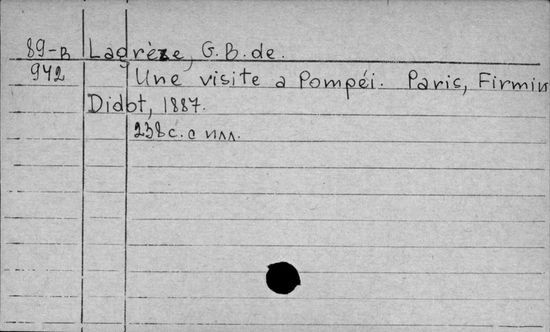 89-в Lagrèze, G.B. de.
942 Une visite a Pompéi. Paris, Firmin
Didot, 1887.
238 с. с илл.